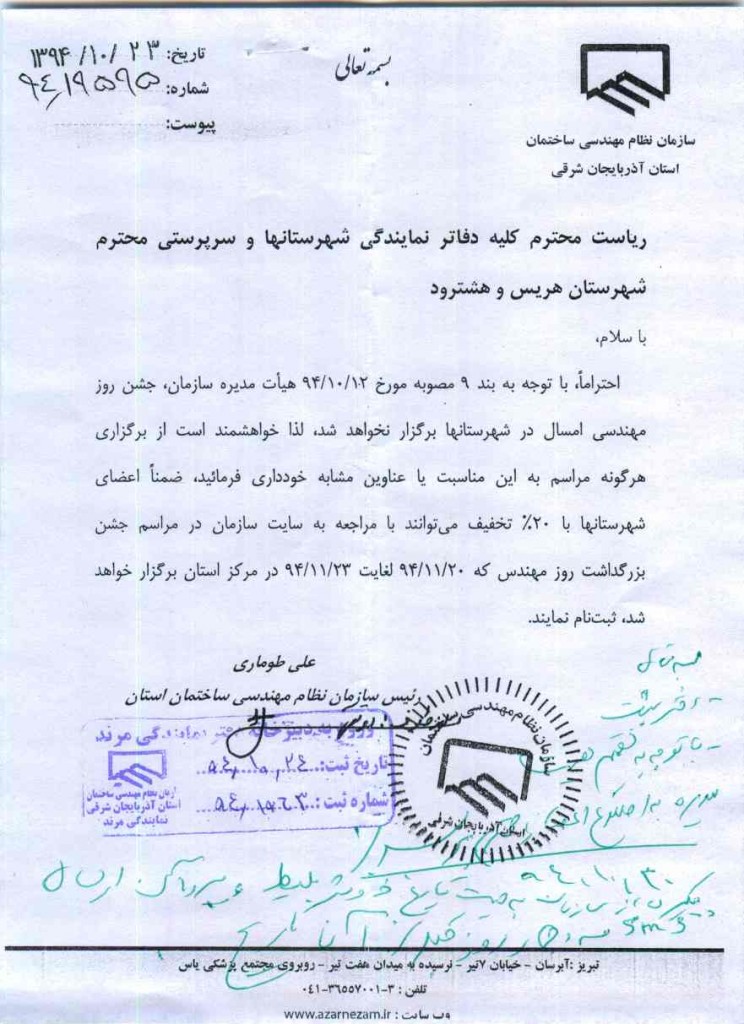 بسمه تعالی
تاریخ: ۱۳۹۴/۱۰/۲۳
شماره: ۹۴,۱۹۵۹۵
پیوست:
سازمان نظام مهندسی ساختمان
استان آذربایجان شرقی
ریاست محترم کلیه دفاتر نمایندگی شهرستانها و سرپرستی محترم
شهرستان هریس و هشترود
با سلام،
احتراماً، با توجه به بند ۹ مصوبه مورخ ۹۴/۱۰/۱۲ هیأت مدیره سازمان، جشن روز
مهندسی امسال در شهرستانها برگزار نخواهد شد، لذا خواهشمند است از برگزاری
هرگونه مراسم به این مناسبت یا عناوین مشابه خودداری فرمائید، ضمناً اعضای
شهرستانها با ۲۰٪ تخفیف می‌توانند با مراجعه به سایت سازمان در مراسم جشن
بزرگداشت روز مهندس که ۹۴/۱۱/۲۰ لغایت ۹۴/۱۱/۲۳ در مرکز استان برگزار خواهد
شد، ثبت‌نام نمایند.
علی طوماری
رئیس سازمان نظام مهندسی ساختمان استان
ورود به دبیرخانه دفتر نمایندگی مرند
تاریخ ثبت:
شماره ثبت:
سازمان نظام مهندسی ساختمان
استان آذربایجان شرقی
نمایندگی مرند
سازمان نظام مهندسی ساختمان
استان آذربایجان شرقی
بسمه تعالی
- دفتر ثبت
- با توجه به
مدیره به اطلاع
SMS
تبریز: آبرسان - خیابان ۷تیر - نرسیده به میدان هفت تیر - روبروی مجتمع پزشکی یاس
تلفن : ۳-۳۶۵۵۷۰۰۱-۰۴۱
وب سایت : www.azarnezam.ir